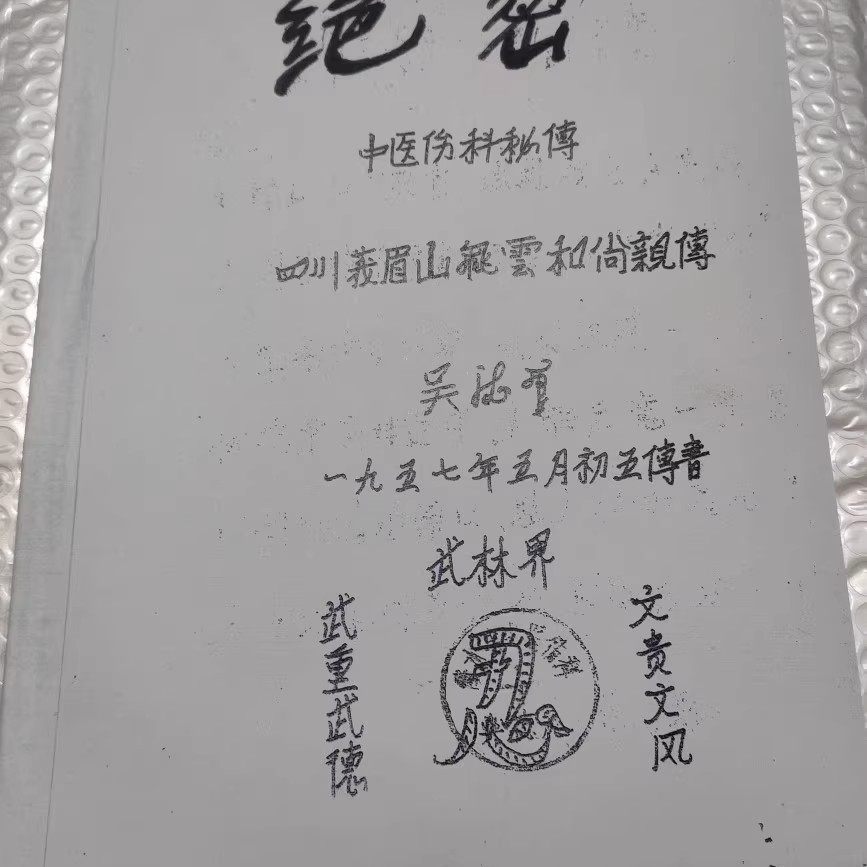 绝密
中医伤科秘傳
四川莪眉山 雲和尚親傳
吴
一九五七年五月初五傳書
武林界
武重武德
文贵文风